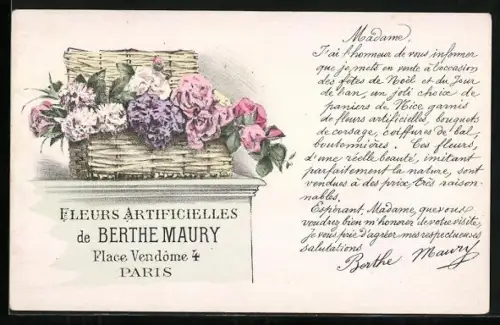 FLEURS ARTIFICIELLES
de BERTHE MAURY
Place Vendôme 4
PARIS
Madame.
J'ai l'honneur de vous informer
que je mets en vente à l'occasion
des fêtes de Noël et du Jour
de l'an, un joli choix de
paniers de Nice garnis
de fleurs artificielles, bouquets
de corsage, coiffures de bal,
boutonnières. Ces fleurs,
d'une réelle beauté, imitant
parfaitement la nature, sont
vendues à des prix très raison-
nables.
Espérant, Madame, que vous
voudrez bien m'honorer de votre visite,
Je vous prie d'agréer mes respectueuses
salutations
Berthe Maury